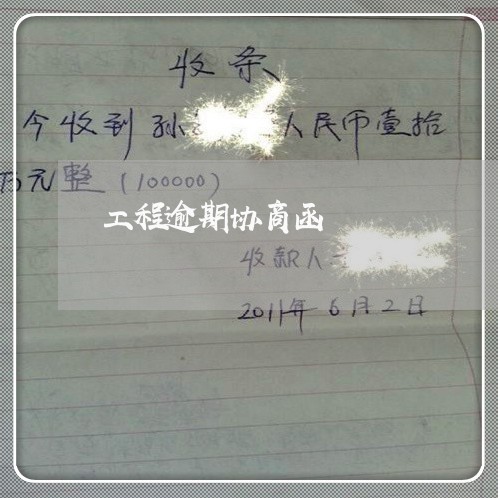 收条
今收到孙 人民币壹拾
万元整（100000）
工程逾期协商函
收款人
2011年6月2日